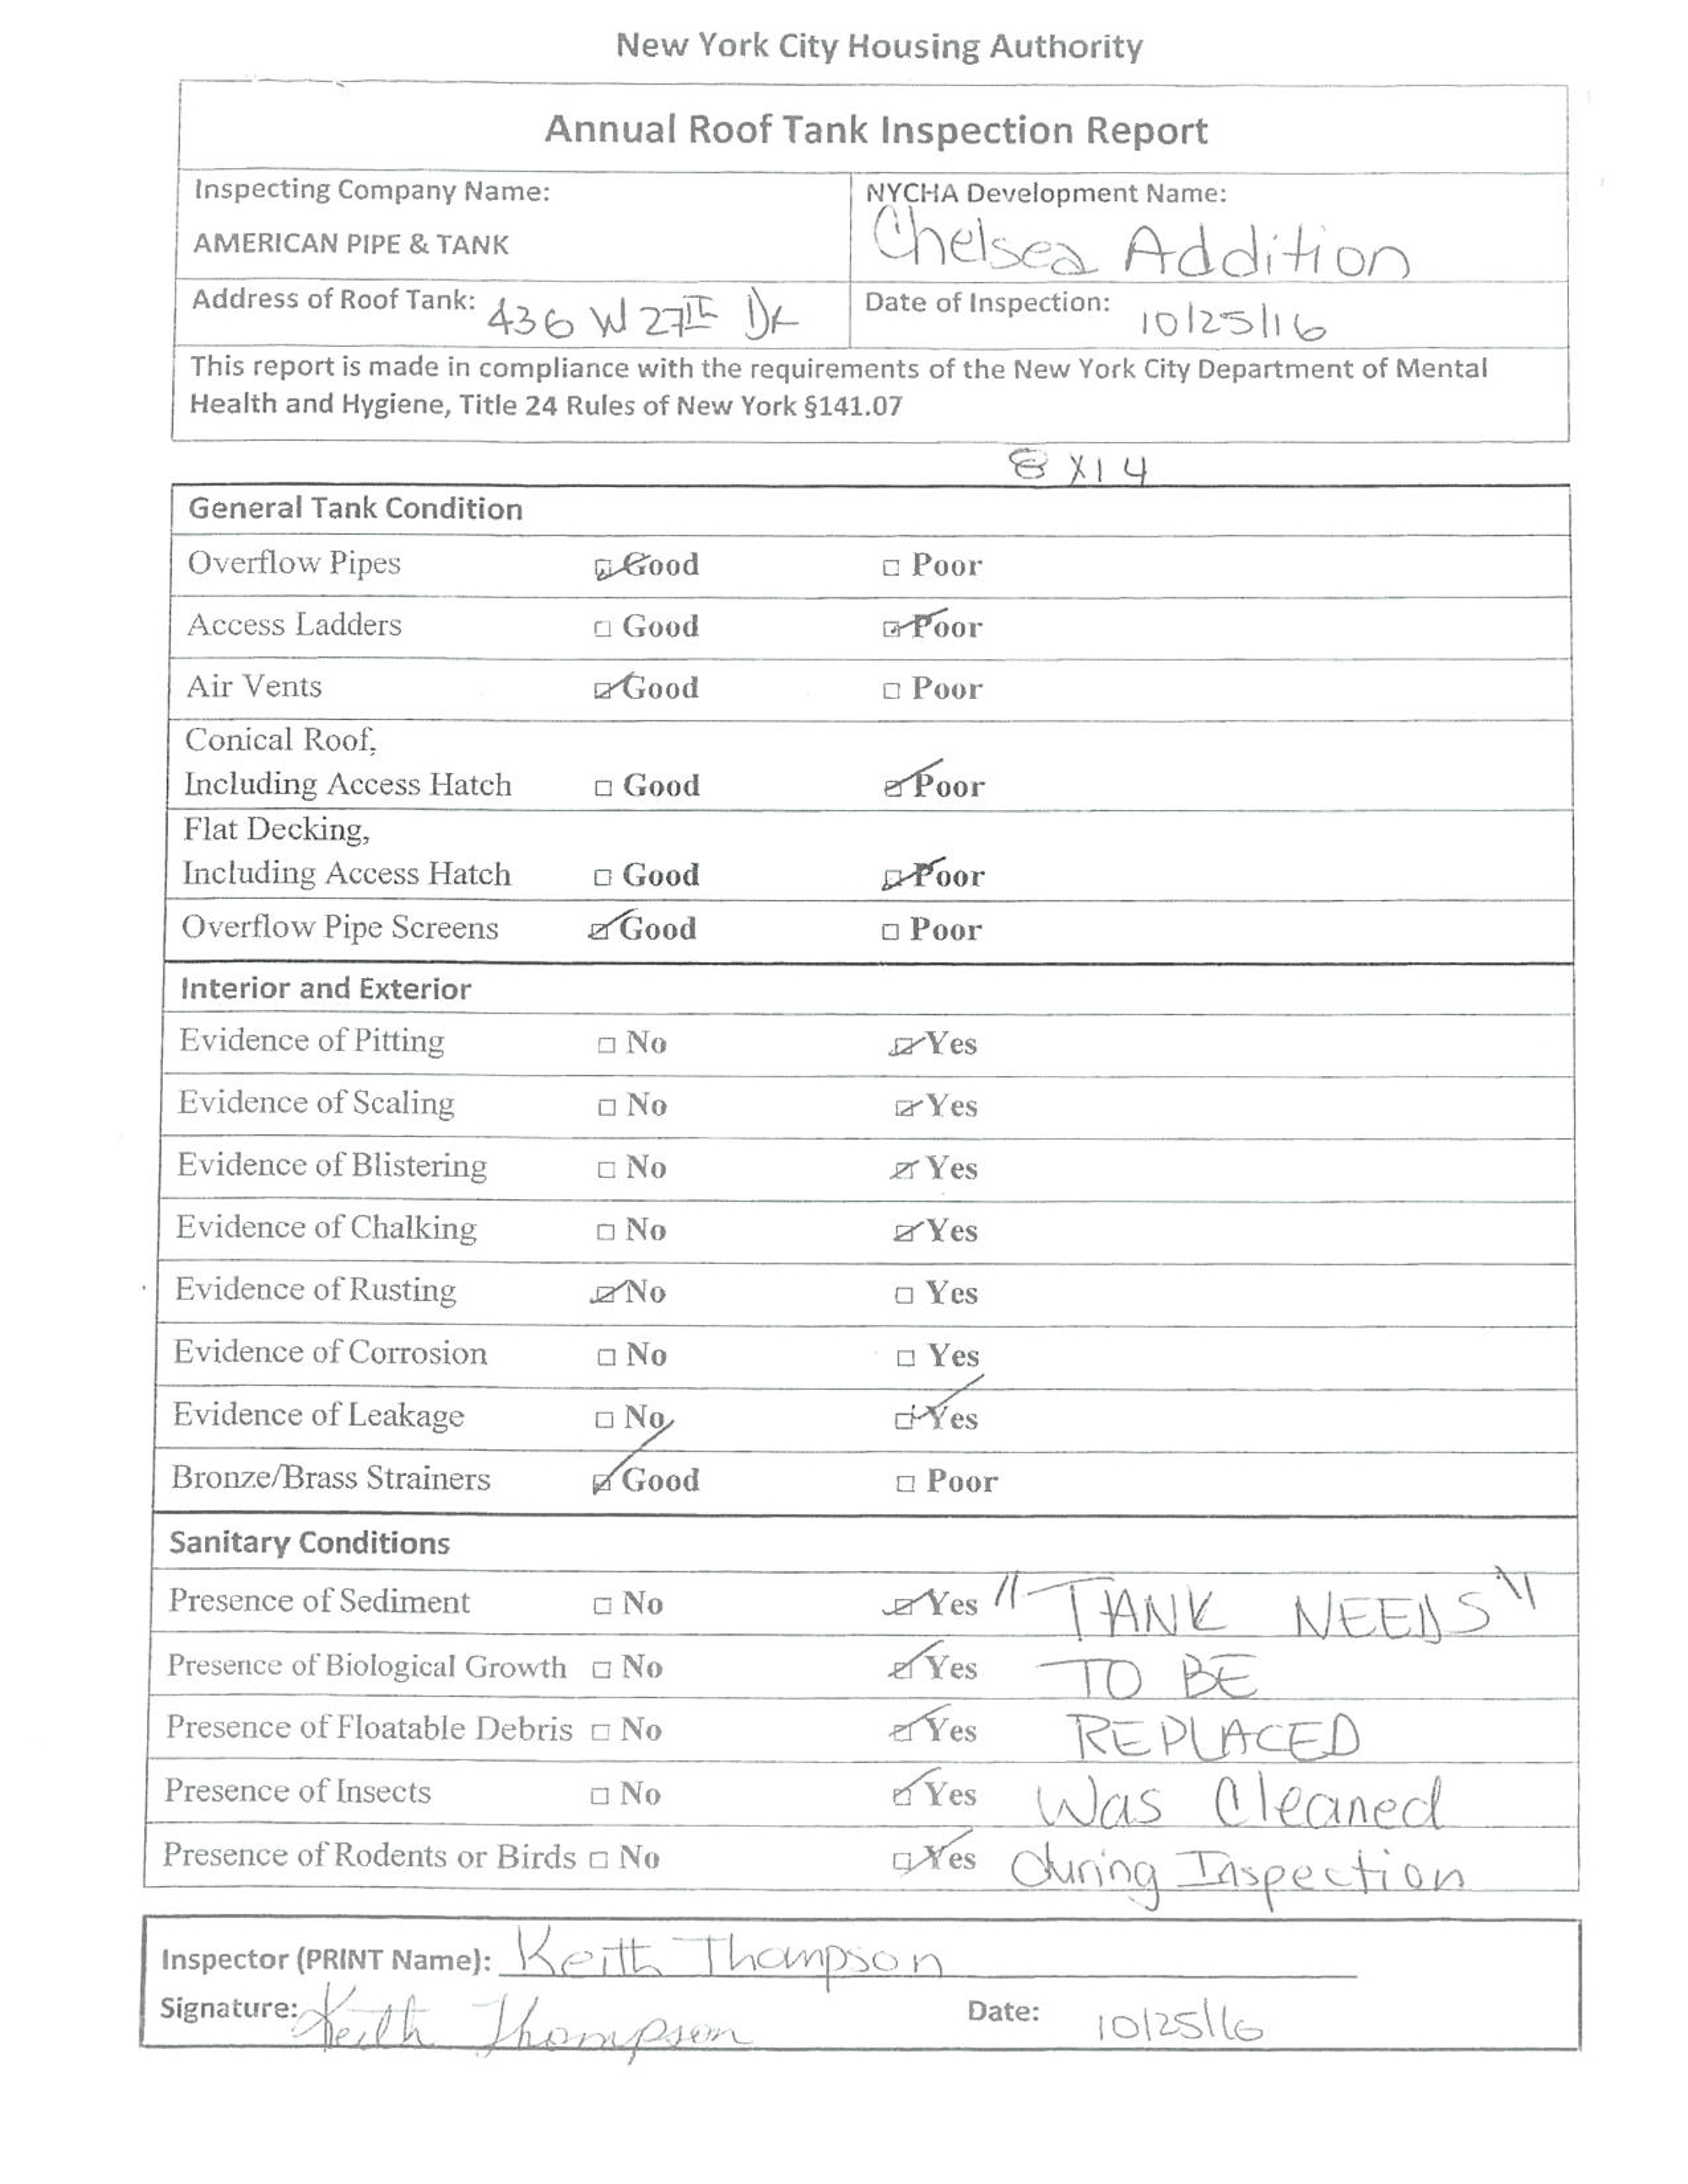 New York City Housing Authority
Annual Roof Tank Inspection Report
Inspecting Company Name:
AMERICAN PIPE & TANK
NYCHA Development Name:
Chelsea Addition
Address of Roof Tank: 436 W 27th Dr
Date of Inspection: 10/25/16
This report is made in compliance with the requirements of the New York City Department of Mental
Health and Hygiene, Title 24 Rules of New York §141.07
8 X14
General Tank Condition
Overflow Pipes ☑ Good ☐ Poor
Access Ladders ☐ Good ☑ Poor
Air Vents ☑ Good ☐ Poor
Conical Roof,
Including Access Hatch ☐ Good ☑ Poor
Flat Decking,
Including Access Hatch ☐ Good ☑ Poor
Overflow Pipe Screens ☑ Good ☐ Poor
Interior and Exterior
Evidence of Pitting ☐ No ☑ Yes
Evidence of Scaling ☐ No ☑ Yes
Evidence of Blistering ☐ No ☑ Yes
Evidence of Chalking ☐ No ☑ Yes
Evidence of Rusting ☑ No ☐ Yes
Evidence of Corrosion ☐ No ☐ Yes
Evidence of Leakage ☐ No ☑ Yes
Bronze/Brass Strainers ☑ Good ☐ Poor
Sanitary Conditions
Presence of Sediment ☐ No ☑ Yes "TANK NEEDS"
Presence of Biological Growth ☐ No ☑ Yes TO BE
Presence of Floatable Debris ☐ No ☑ Yes REPLACED
Presence of Insects ☐ No ☑ Yes Was Cleaned
Presence of Rodents or Birds ☐ No ☑ Yes during Inspection
Inspector (PRINT Name): Keith Thompson
Signature: Keith Thompson Date: 10/25/16